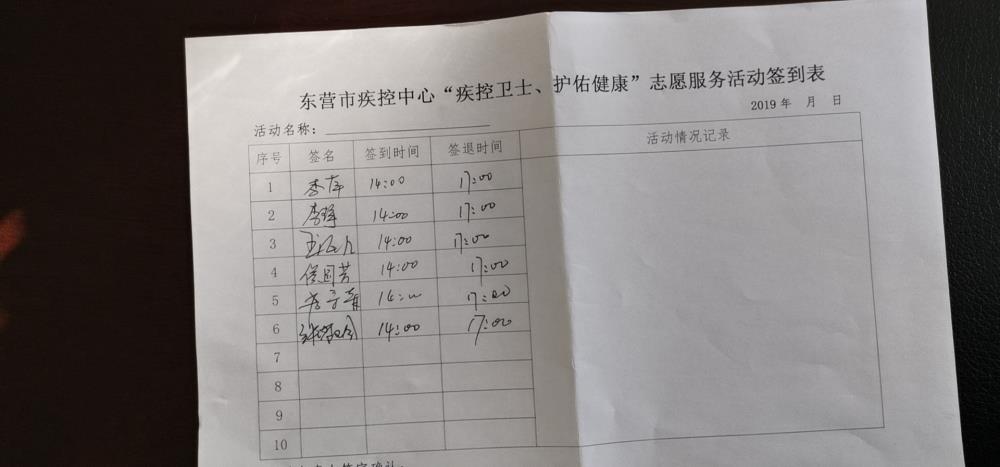 东营市疾控中心“疾控卫士、护佑健康”志愿服务活动签到表
2019 年 月 日
活动名称：
序号 签名 签到时间 签退时间 活动情况记录
1 14:00 17:00
2 14:00 17:00
3 14:00 17:00
4 14:00 17:00
5 17:00
6 14:00 17:00
7
8
9
10